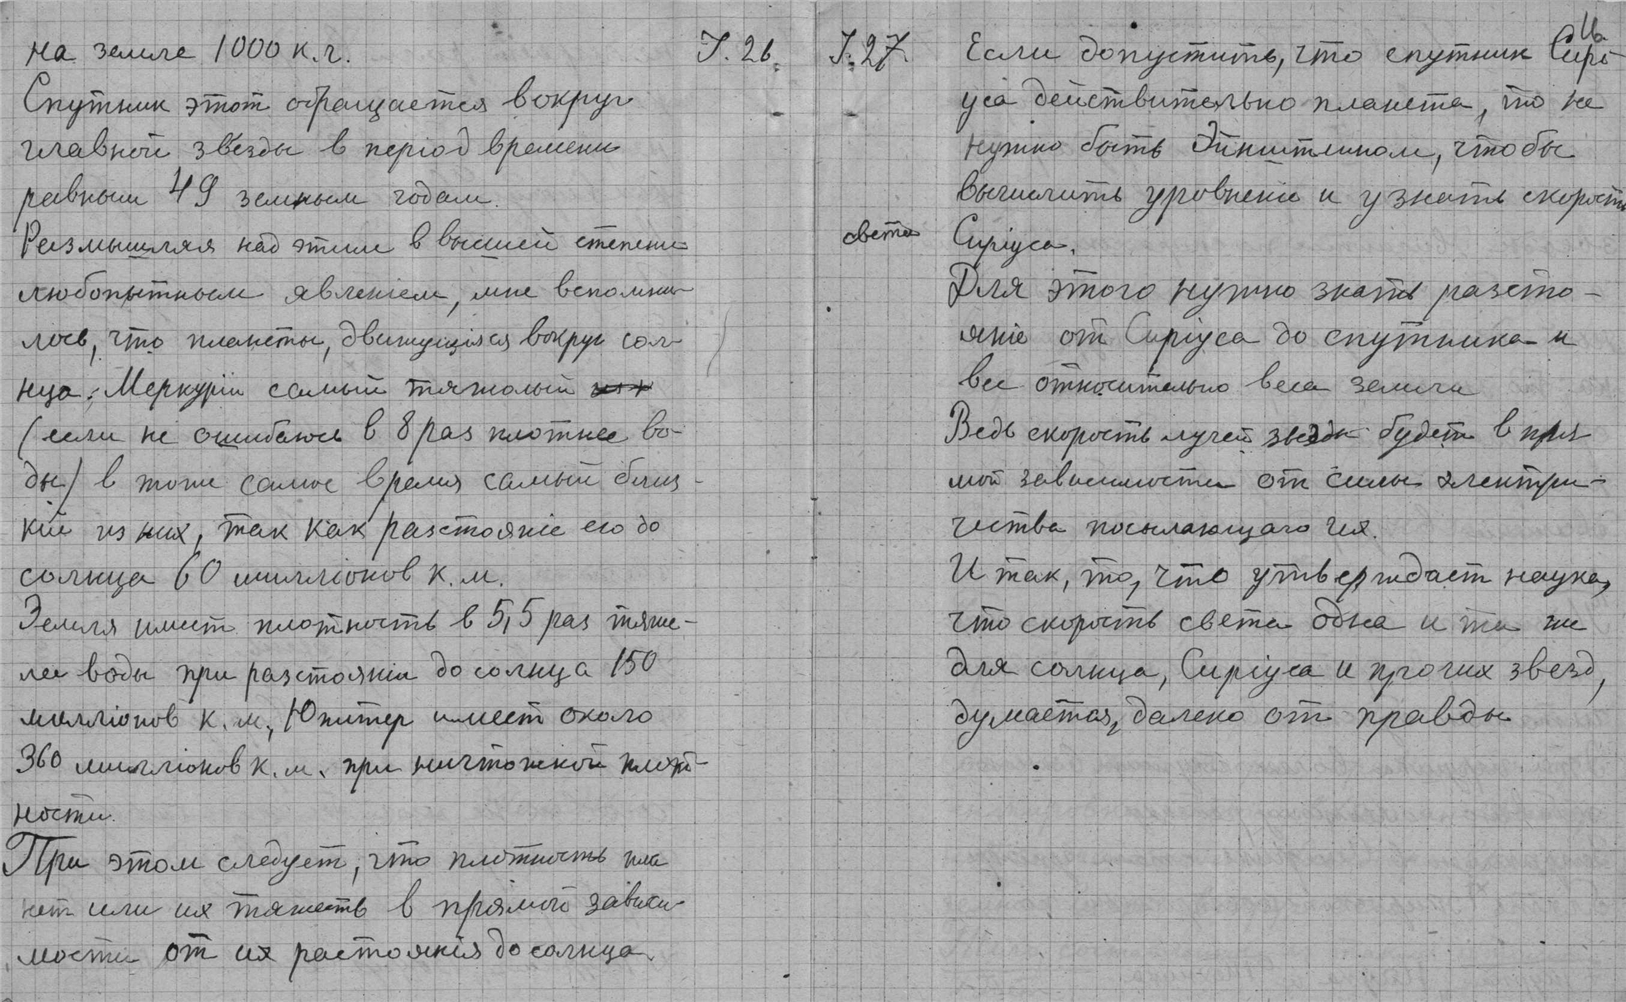 на земле 1000 к.г.
I. 26.
Спутник этот обращается вокруг
главной звезды в період времени
равным 49 земным годам.
Размышляя над этим в высшей степени
любопытным явленіем, мне вспомни-
лось, что планеты, движущіяся вокруг сол-
нца: Меркурій самый тяжолый
(если не ошибаюсь в 8 раз плотнее во-
ды) в тоже самое время самый близ-
кій из них, так как разстояніе его до
солнца 60 милліонов к.м.
Земля имеет плотность в 5,5 раз тяже-
лее воды при разстояніи до солнца 150
милліонов к.м., Юпитер имеет около
360 милліонов к.м. при ничтожной плот-
ности.
При этом следует, что плотность пла
нет или их тяжесть в прямой зависи-
мости от их растоянія до солнца.
I. 27.
Если допустить, что спутник Сирі-
уса действительно планета, то не
нужно быть Эйнштейном, чтобы
вычислить уровненіе и узнать скорость
света Сиріуса.
Для этого нужно знать разсто-
яніе от Сиріуса до спутника и
вес относительно веса земли
Ведь скорость лучей звезды будет в пря
мой зависимости от силы электри-
чества посылающаго их.
И так, то, что утверждает наука,
что скорость света одна и та же
для солнца, Сиріуса и прочих звезд,
думается, далеко от правды